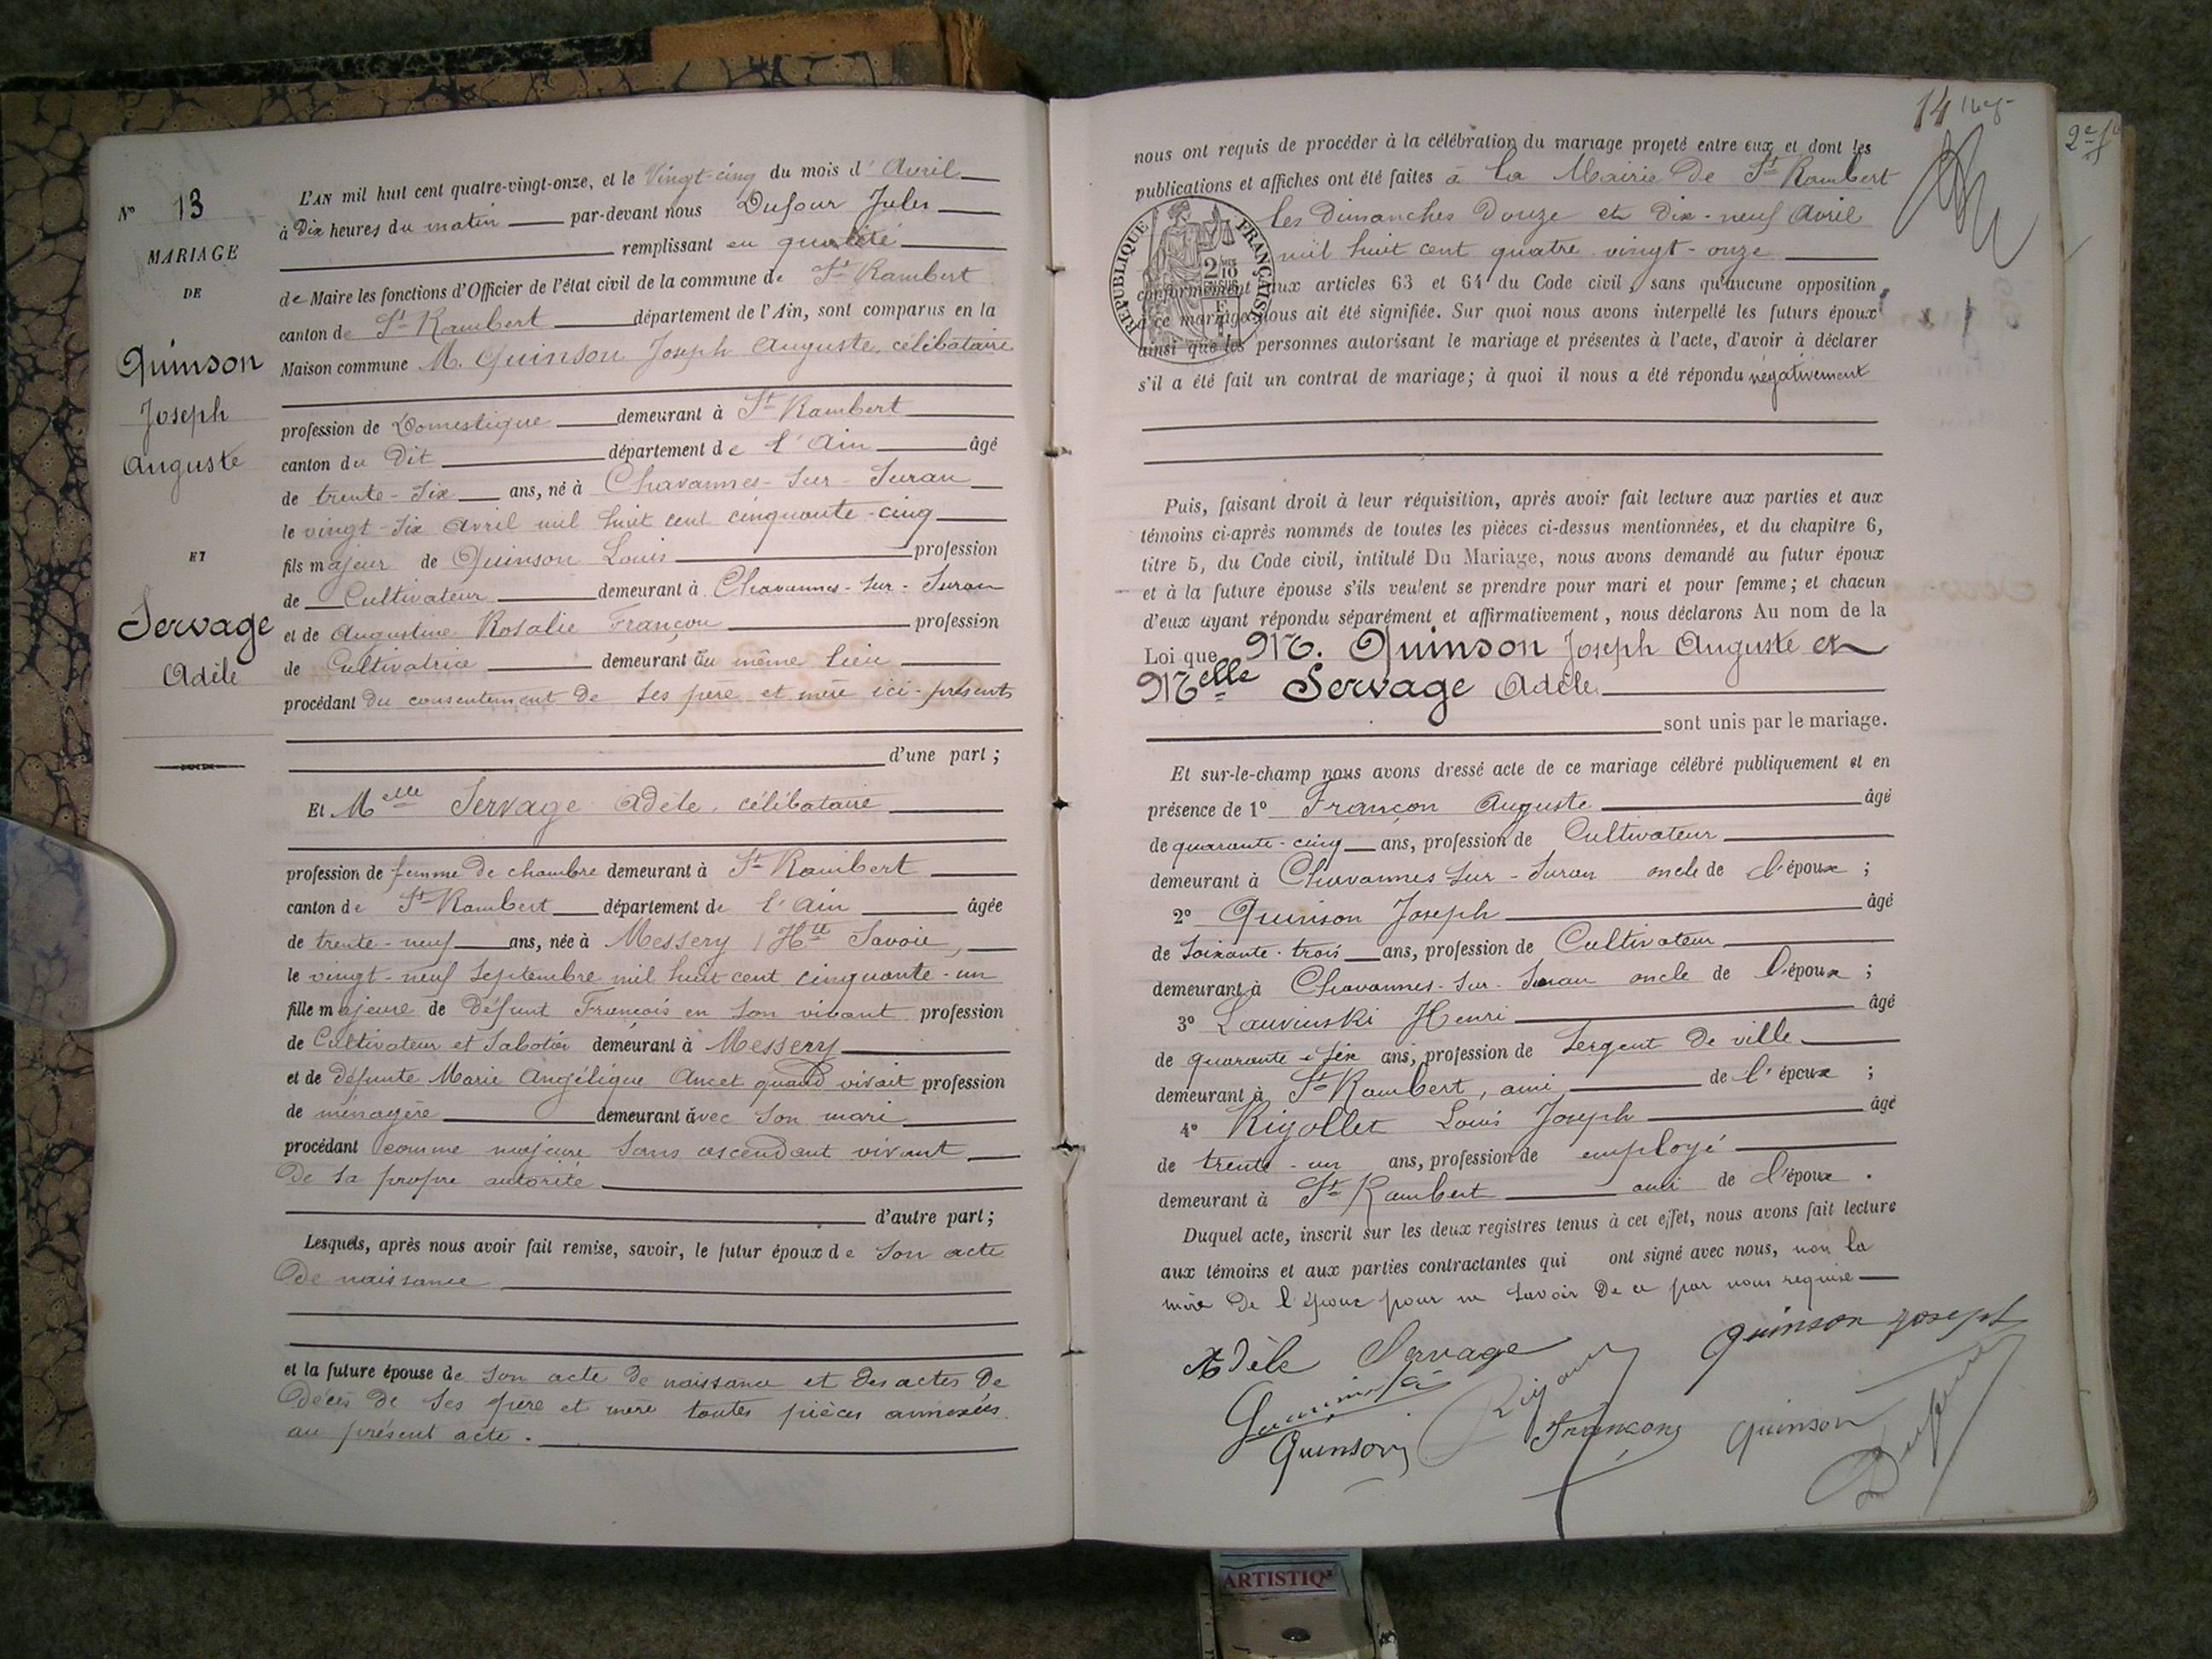 N° 13
MARIAGE
DE
Quinson
Joseph
Auguste
ET
Servage
Adèle
L'AN mil huit cent quatre-vingt-onze, et le Vingt-cinq du mois d'Avril
à Dix heures du matin par-devant nous Dufour Jules
remplissant en qualité
de Maire les fonctions d'Officier de l'état civil de la commune de St Rambert
canton de St Rambert département de l'Ain, sont comparus en la
Maison commune M. Quinson Joseph Auguste, célibataire
profession de Domestique demeurant à St Rambert
canton du Dit département de l'Ain âgé
de trente-six ans, né à Chavannes-sur-Suran
le vingt-six Avril mil huit cent cinquante-cinq
fils majeur de Quinson Louis profession
de Cultivateur demeurant à Chavannes-sur-Suran
et de Augustine Rosalie Françon profession
de Cultivatrice demeurant au même lieu
procédant du consentement de ses père et mère ici-présents
d'une part;
Et Melle Servage Adèle, célibataire
profession de femme de chambre demeurant à St Rambert
canton de St Rambert département de l'Ain âgée
de trente-neuf ans, née à Messery (Hte Savoie)
le vingt-neuf Septembre mil huit cent cinquante-un
fille majeure de Défunt François en son vivant profession
de Cultivateur et Sabotier demeurant à Messery
et de défunte Marie Angélique Ancet quand vivait profession
de ménagère demeurant avec son mari
procédant comme majeure sans ascendant vivant
de sa propre autorité
d'autre part;
Lesquels, après nous avoir fait remise, savoir, le futur époux de son acte
de naissance
et la future épouse de son acte de naissance et des actes de
décès de ses père et mère toutes pièces annexées
au présent acte.
14
2e f
nous ont requis de procéder à la célébration du mariage projeté entre eux et dont les
publications et affiches ont été faites à la Mairie de St Rambert
les dimanches Douze et Dix-neuf Avril
mil huit cent quatre vingt-onze
RÉPUBLIQUE FRANÇAISE
2/10
conformément aux articles 63 et 64 du Code civil, sans qu'aucune opposition
à ce mariage nous ait été signifiée. Sur quoi nous avons interpellé les futurs époux
ainsi que les personnes autorisant le mariage et présentes à l'acte, d'avoir à déclarer
s'il a été fait un contrat de mariage; à quoi il nous a été répondu négativement
Puis, faisant droit à leur réquisition, après avoir fait lecture aux parties et aux
témoins ci-après nommés de toutes les pièces ci-dessus mentionnées, et du chapitre 6,
titre 5, du Code civil, intitulé Du Mariage, nous avons demandé au futur époux
et à la future épouse s'ils veulent se prendre pour mari et pour femme; et chacun
d'eux ayant répondu séparément et affirmativement, nous déclarons Au nom de la
Loi que M. Quinson Joseph Auguste et
Melle Servage Adèle
sont unis par le mariage.
Et sur-le-champ nous avons dressé acte de ce mariage célébré publiquement et en
présence de 1° Françon Auguste âgé
de quarante-cinq ans, profession de Cultivateur
demeurant à Chavannes sur-Suran oncle de l'époux;
2° Quinson Joseph âgé
de soixante-trois ans, profession de Cultivateur
demeurant à Chavannes-sur-Suran oncle de l'époux;
3° Lauvinski Henri âgé
de quarante-six ans, profession de Sergent de ville
demeurant à St Rambert, ami de l'époux;
4° Rigollet Louis Joseph âgé
de trente-un ans, profession de employé
demeurant à St Rambert ami de l'époux.
Duquel acte, inscrit sur les deux registres tenus à cet effet, nous avons fait lecture
aux témoins et aux parties contractantes qui ont signé avec nous, non la
mère de l'époux pour ne savoir de ce par nous requise
Adèle Servage
Quinson Joseph
Quinson
Françon
Quinson
Dufour
ARTISTIQ